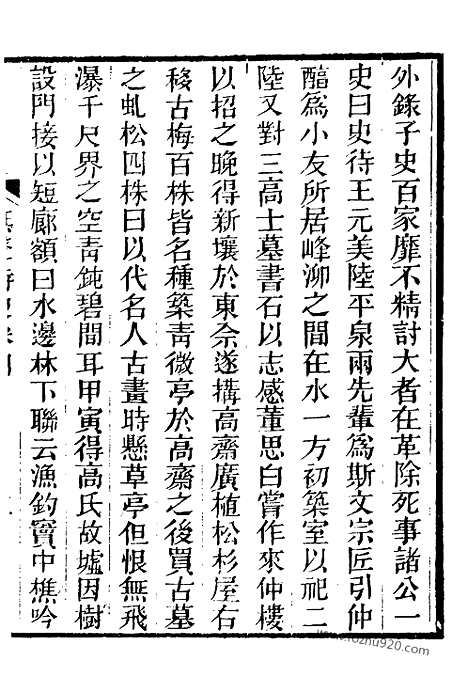 外錄子史百家靡不精討大者在革除死事諸公一
史曰史待王元美陸平泉兩先輩爲斯文宗匠引仲
醇爲小友所居峰泖之間在水一方初築室以祀二
陸又對三高士墓書石以志感董思白嘗作來仲樓
以招之晚得新壤於東佘遂搆高齋廣植松杉屋右
移古梅百株皆名種築靑微亭於高齋之後買古墓
之虬松四株曰以代名人古畫時懸草亭但恨無飛
瀑千尺界之空靑鈍碧間耳甲寅得高氏故墟因樹
設門接以短廊額曰水邊林下聯云漁釣竇中樵吟
www.fozhu920.com